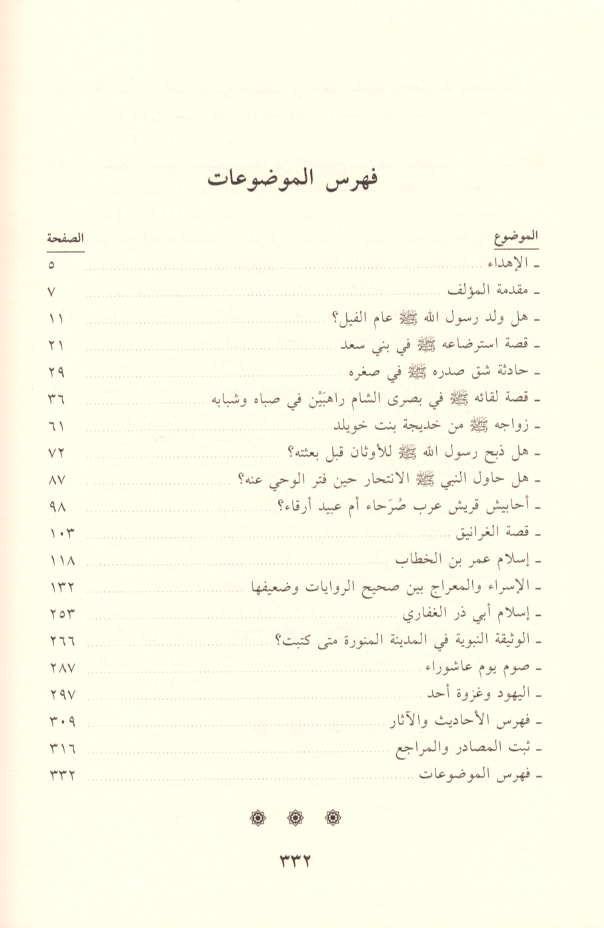 فهرس الموضوعات
الموضوع الصفحة
ـ الإهداء ٥
ـ مقدمة المؤلف ٧
ـ هل ولد رسول الله ﷺ عام الفيل؟ ١١
ـ قصة استرضاعه ﷺ في بني سعد ٢١
ـ حادثة شق صدره ﷺ في صغره ٢٩
ـ قصة لقائه ﷺ في بصرى الشام راهبَيْن في صباه وشبابه ٣٦
ـ زواجه ﷺ من خديجة بنت خويلد ٦١
ـ هل ذبح رسول الله ﷺ للأوثان قبل بعثته؟ ٧٢
ـ هل حاول النبي ﷺ الانتحار حين فتر الوحي عنه؟ ٨٧
ـ أحابيش قريش عرب صُرَحاء أم عبيد أرقاء؟ ٩٨
ـ قصة الغرانيق ١٠٣
ـ إسلام عمر بن الخطاب ١١٨
ـ الإسراء والمعراج بين صحيح الروايات وضعيفها ١٣٢
ـ إسلام أبي ذر الغفاري ٢٥٣
ـ الوثيقة النبوية في المدينة المنورة متى كتبت؟ ٢٦٦
ـ صوم يوم عاشوراء ٢٨٧
ـ اليهود وغزوة أحد ٢٩٧
ـ فهرس الأحاديث والآثار ٣٠٩
ـ ثبت المصادر والمراجع ٣١٦
ـ فهرس الموضوعات ٣٣٢
٣٣٢